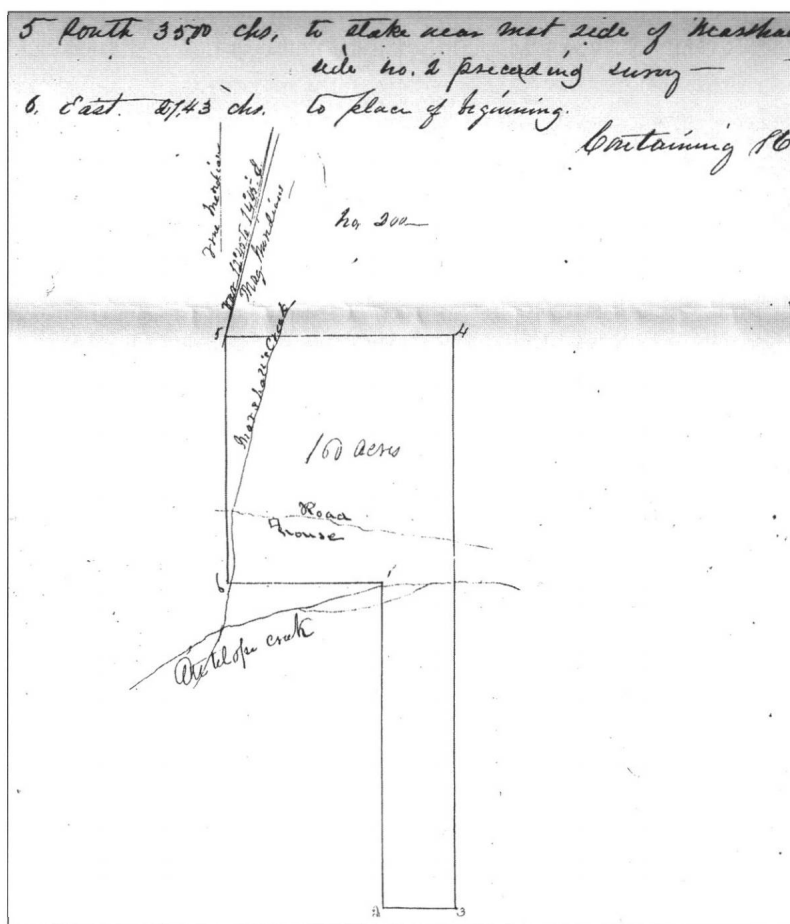 5 South 35,00 chs, to stake near west side of
side no. 2 preceding survey —
6. East. 27,43 chs. to place of beginning.
Containing
True Meridian
Mag Meridian
no 200
5
4
Marshall's Creek
160 acres
Road
House
6
1
Antelope creek
2
3